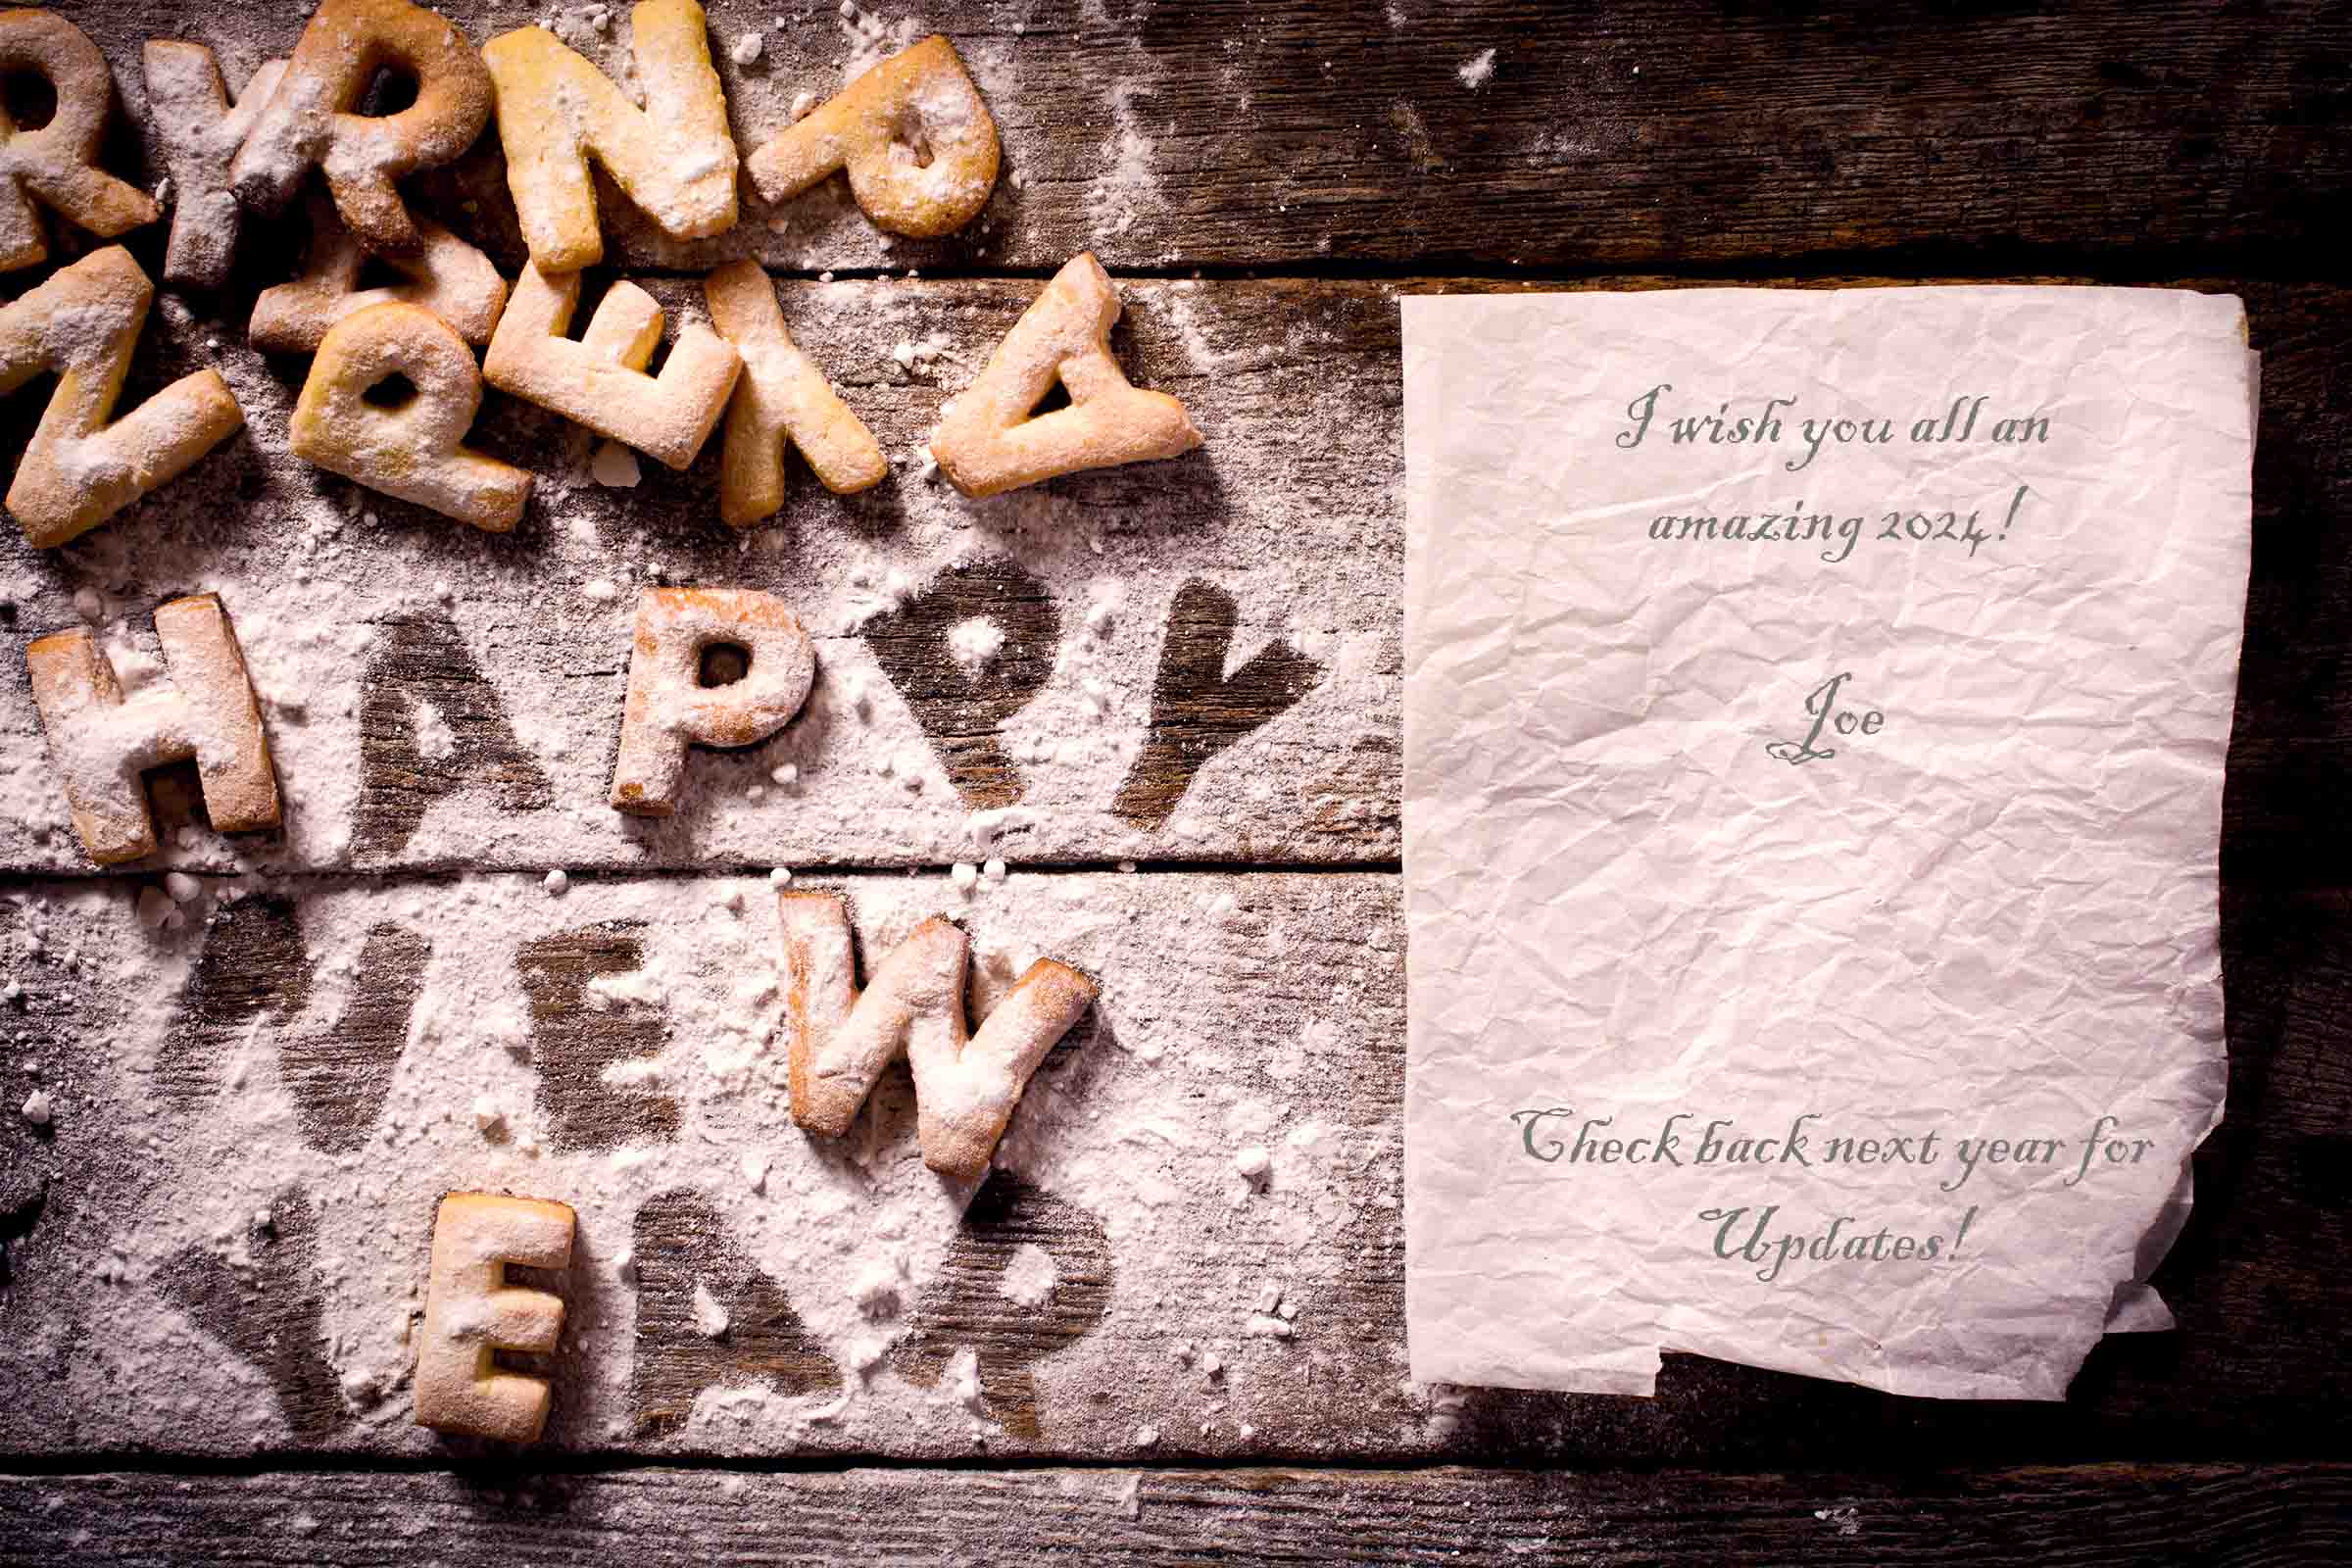 HAPPY
NEW
YEAR
I wish you all an
amazing 2024!
Joe
Check back next year for
Updates!